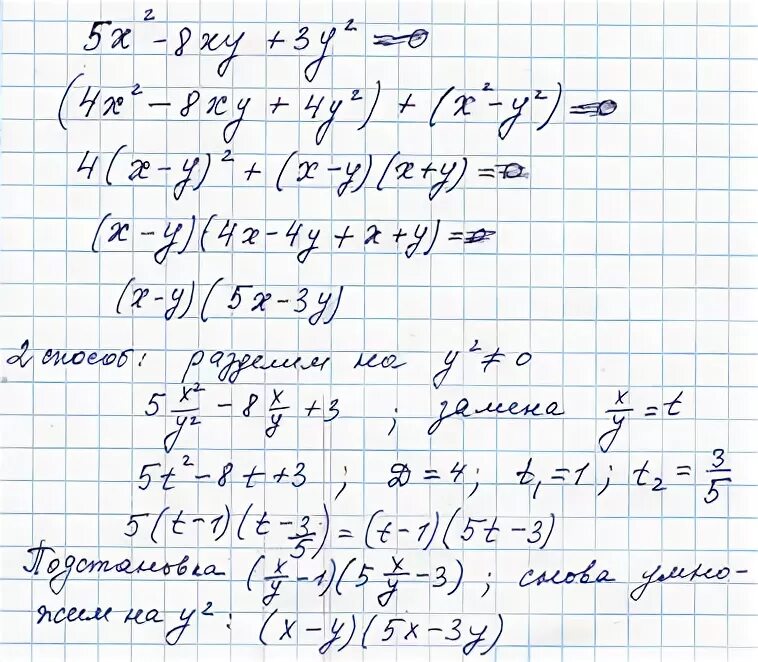 5x² - 8xy + 3y² =
(4x² - 8xy + 4y²) + (x² - y²) =
4(x - y)² + (x - y)(x + y) =
(x - y)(4x - 4y + x + y) =
(x - y)(5x - 3y)
2 способ: разделим на y² ≠ 0
5 x²/y² - 8 x/y + 3 ; замена x/y = t
5t² - 8t + 3 ; D = 4; t₁ = 1; t₂ = 3/5
5(t - 1)(t - 3/5) = (t - 1)(5t - 3)
Подстановка (x/y - 1)(5 x/y - 3) ; снова умно-
жим на y²: (x - y)(5x - 3y)